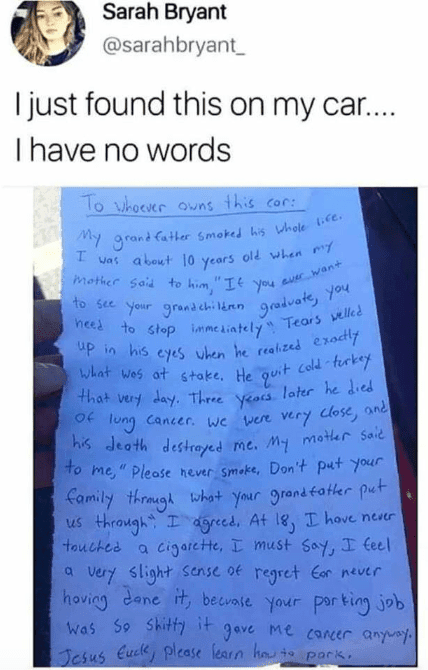 Sarah Bryant
@sarahbryant_
I just found this on my car....
I have no words
To whoever owns this car:
My grandfather smoked his whole life.
I was about 10 years old when my
mother said to him, "If you ever want
to see your grandchildren graduate, you
need to stop immediately". Tears welled
up in his eyes when he realized exactly
what was at stake. He quit cold-turkey
that very day. Three years later he died
of lung cancer. We were very close, and
his death destroyed me. My mother said
to me, "Please never smoke, Don't put your
family through what your grandfather put
us through". I agreed. At 18, I have never
touched a cigarette, I must say, I feel
a very slight sense of regret for never
having done it, because your parking job
was so shitty it gave me cancer anyway.
Jesus fuck, please learn how to park.